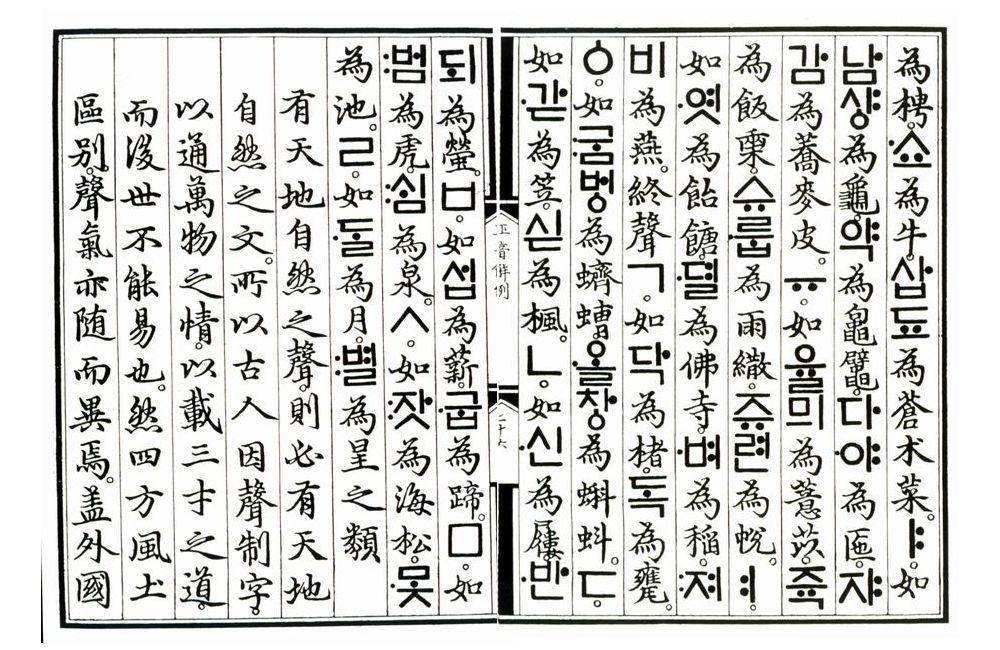 為梬。쇼為牛。삽됴為蒼朮菜。ㅑ。如
남샤ᇰ為龜。약為𪓟鼊。다야為匜。쟈
감為蕎麥皮。ㅠ。如율믜為薏苡。쥭
為飯𣖄。슈룹為雨繖。쥬련為帨。ㅕ。
如엿為飴餹。뎔為佛寺。벼為稻。져
비為燕。終聲ㄱ。如닥為楮。독為甕。
ㆁ。如굼버ᇰ為蠐螬。올차ᇰ為蝌蚪。ㄷ。
如갇為笠。싣為楓。ㄴ。如신為屨。반
正音解例
二十六
되為螢。ㅂ。如섭為薪。굽為蹄。ㅁ。如
범為虎。ᄉᆡᆷ為泉。ㅅ。如잣為海松。못
為池。ㄹ。如ᄃᆞᆯ為月。별為星之類
有天地自然之聲。則必有天地
自然之文。所以古人因聲制字。
以通萬物之情。以載三才之道。
而後世不能易也。然四方風土
區別。聲氣亦随而異焉。盖外國